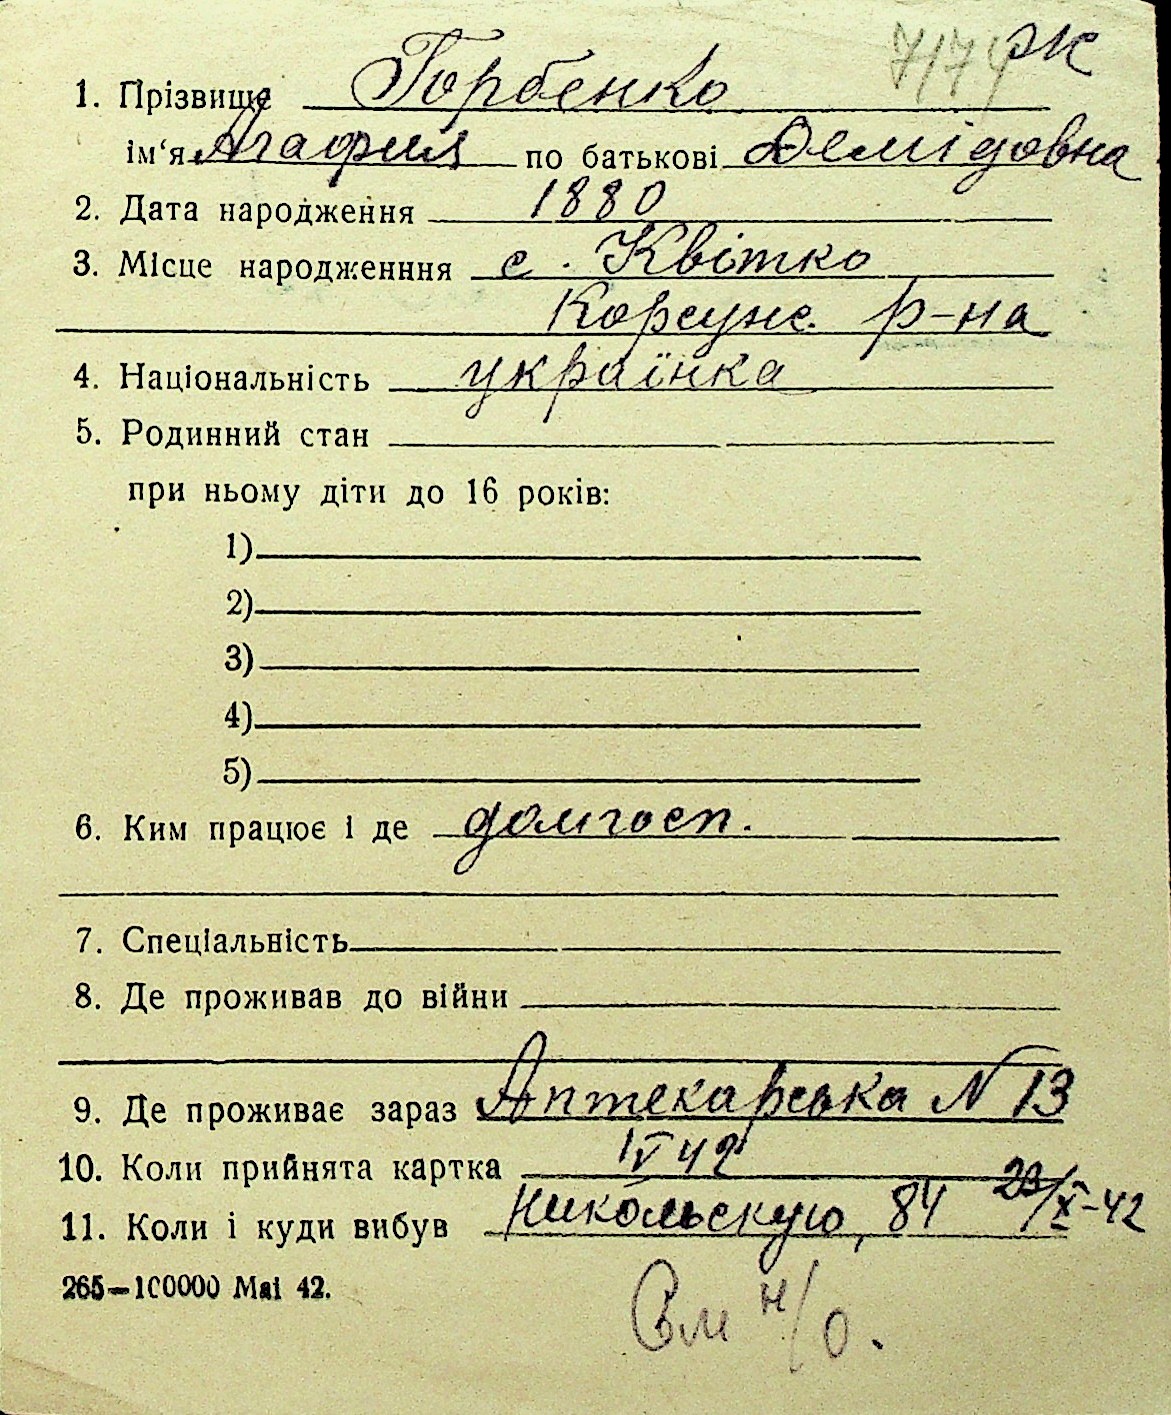 7174 ЖК
1. Прізвище Горбенко
ім‘я Агафия по батькові Демідовна
2. Дата народження 1880
3. Місце народженння с. Квітко
Корсунс. р-на
4. Національність українка
5. Родинний стан
при ньому діти до 16 років:
1)
2)
3)
4)
5)
6. Ким працює і де домгосп.
7. Спеціальність
8. Де проживав до війни
9. Де проживає зараз Аптекарська N 13
10. Коли прийнята картка IV 42
11. Коли і куди вибув Никольскую, 84 23/X-42
265—100000 Mai 42.
См н/о.